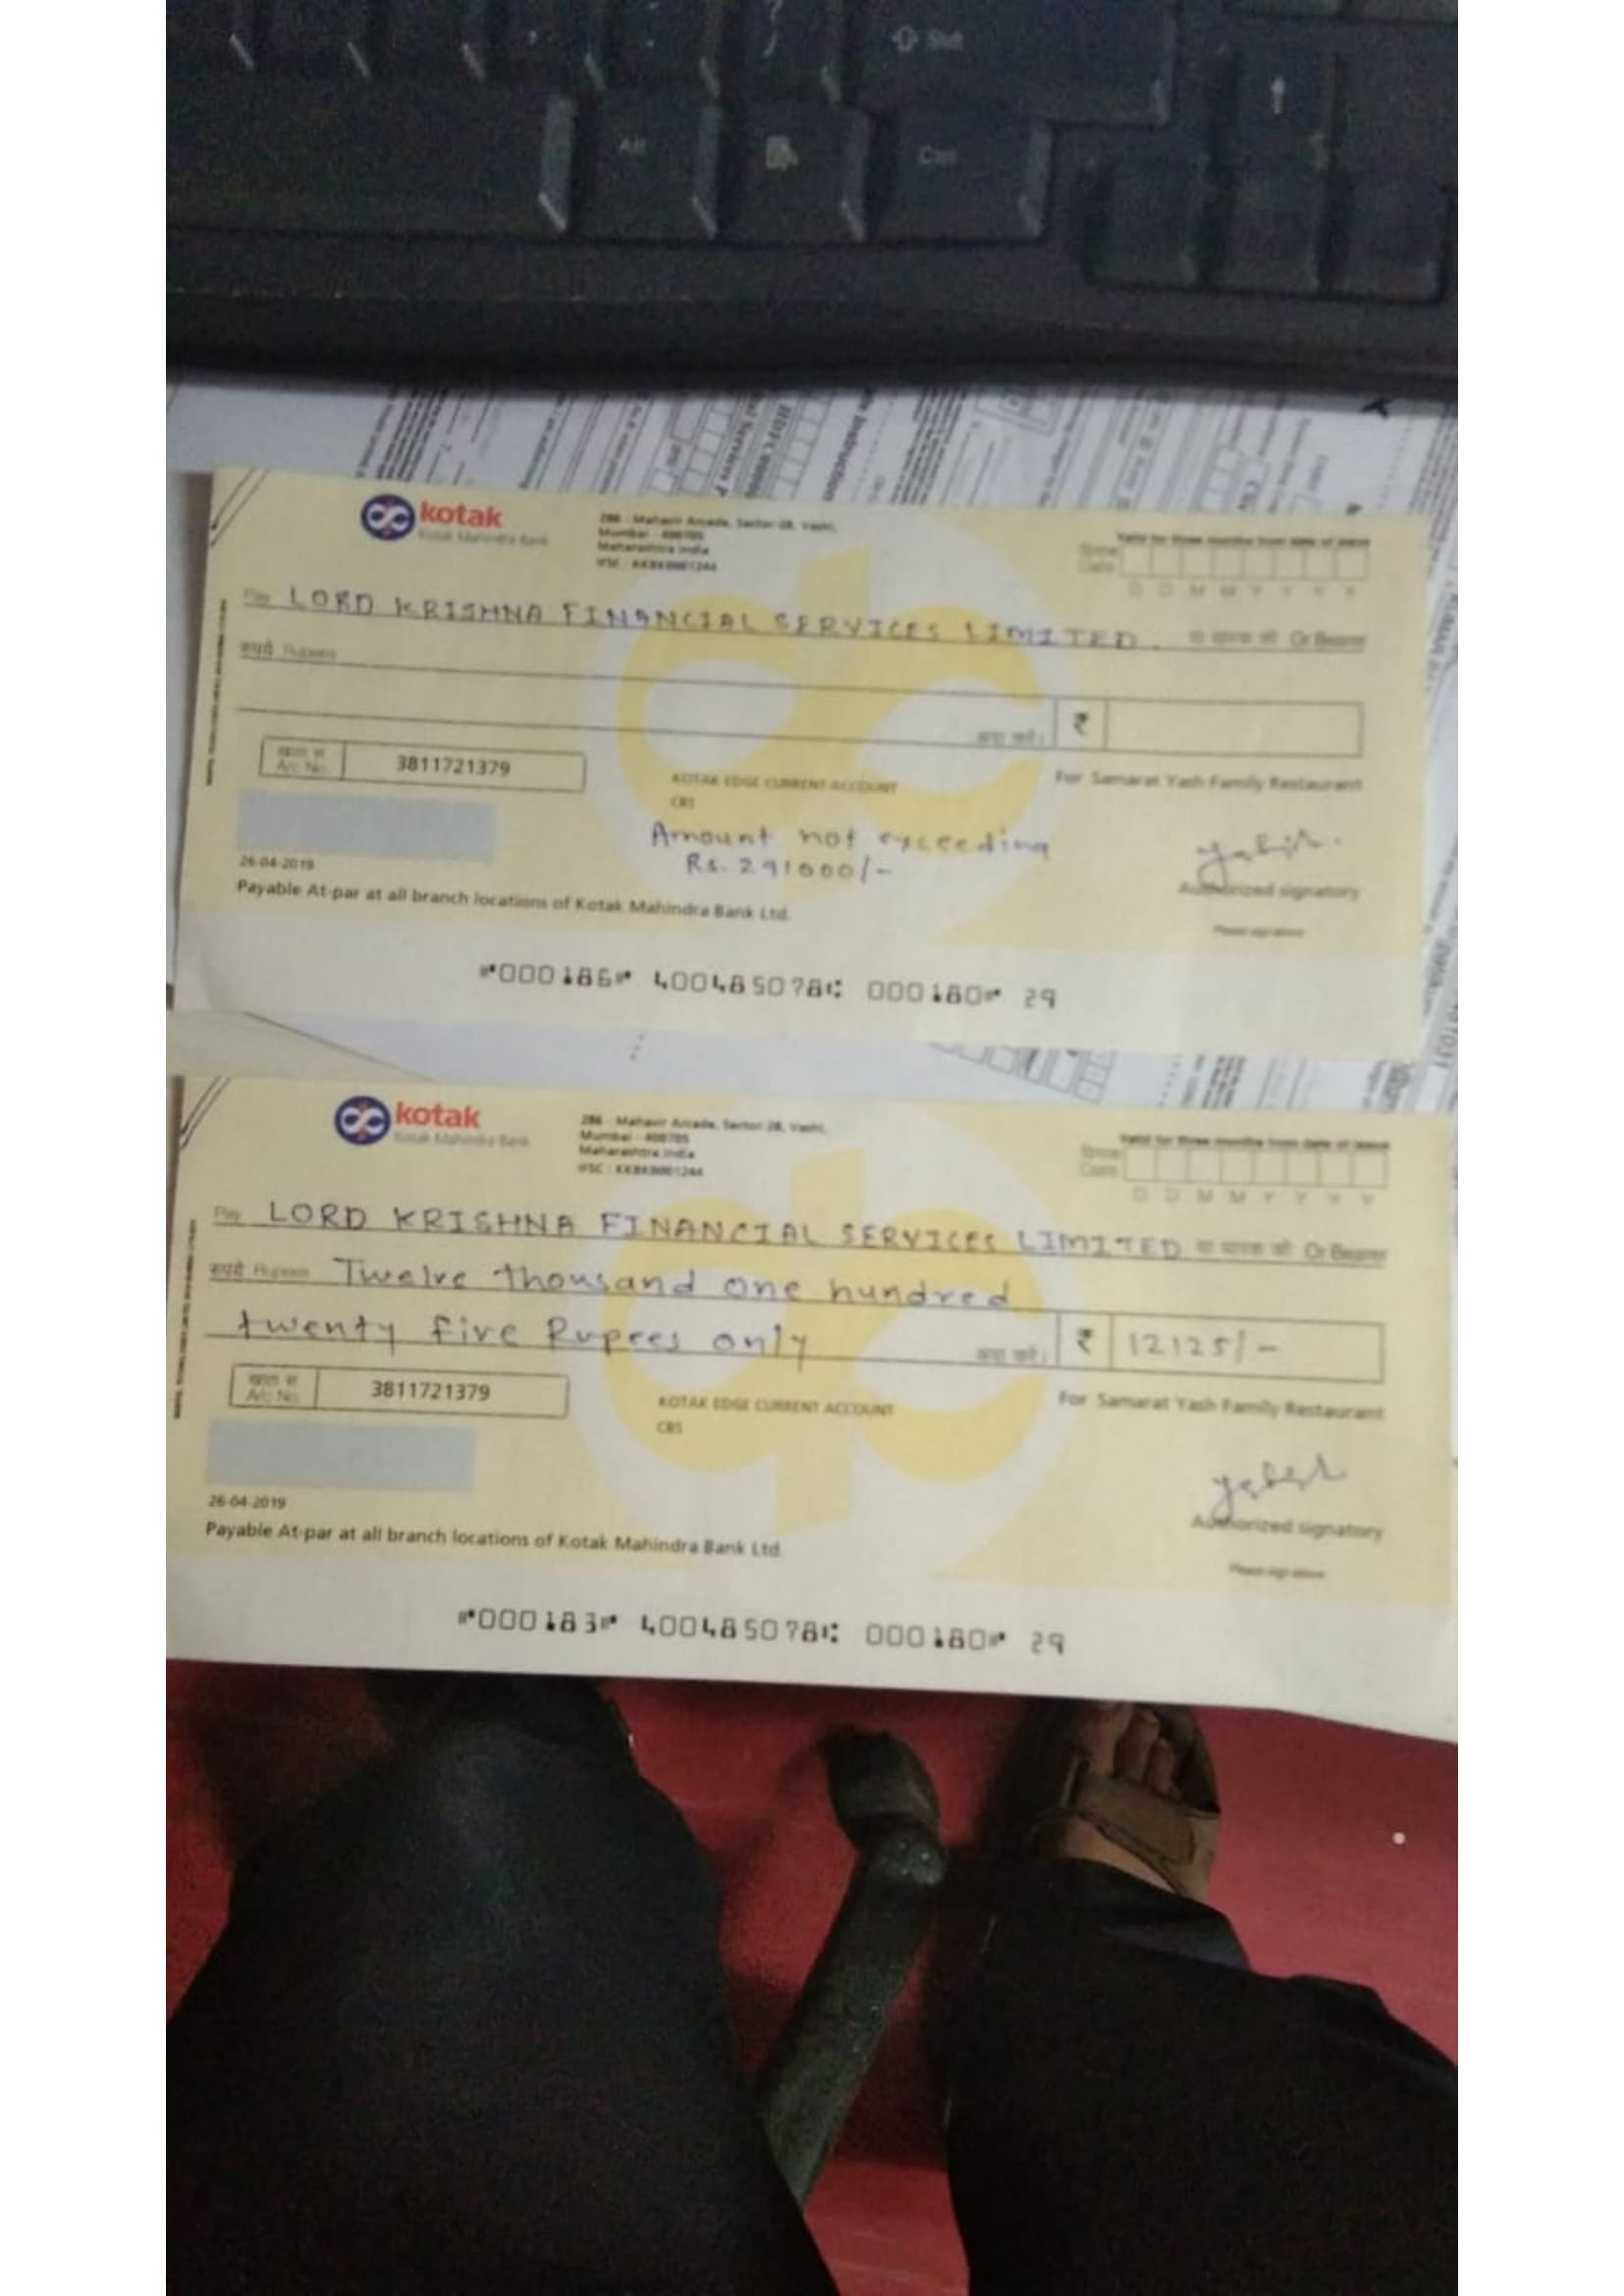 Shift
Alt
kotak
Kotak Mahindra Bank
286 - Mahavir Arcade, Sector-28, Vashi,
Mumbai - 400705
Maharashtra India
IFSC : KKBK0001244
Valid for three months from date of issue
Date
D D M M Y Y Y Y
Pay LORD KRISHNA FINANCIAL SERVICES LIMITED. या धारक को Or Bearer
रुपये Rupees
अदा करें। ₹
खाता सं
A/c No. 3811721379
KOTAK EDGE CURRENT ACCOUNT
CBS
For Samarat Yash Family Restaurant
Amount not exceeding
Rs. 291000/-
26-04-2019
Authorized signatory
Payable At-par at all branch locations of Kotak Mahindra Bank Ltd.
Please sign above
⑈000186⑈ 400485078⑆ 000180⑈ 29
kotak
Kotak Mahindra Bank
286 - Mahavir Arcade, Sector-28, Vashi,
Mumbai - 400705
Maharashtra India
IFSC : KKBK0001244
Valid for three months from date of issue
Date
D D M M Y Y Y Y
Pay LORD KRISHNA FINANCIAL SERVICES LIMITED या धारक को Or Bearer
रुपये Rupees Twelve thousand one hundred
twenty five Rupees only अदा करें। ₹ 12125/-
खाता सं
A/c No. 3811721379
KOTAK EDGE CURRENT ACCOUNT
CBS
For Samarat Yash Family Restaurant
26-04-2019
Authorized signatory
Payable At-par at all branch locations of Kotak Mahindra Bank Ltd.
Please sign above
⑈000183⑈ 400485078⑆ 000180⑈ 29